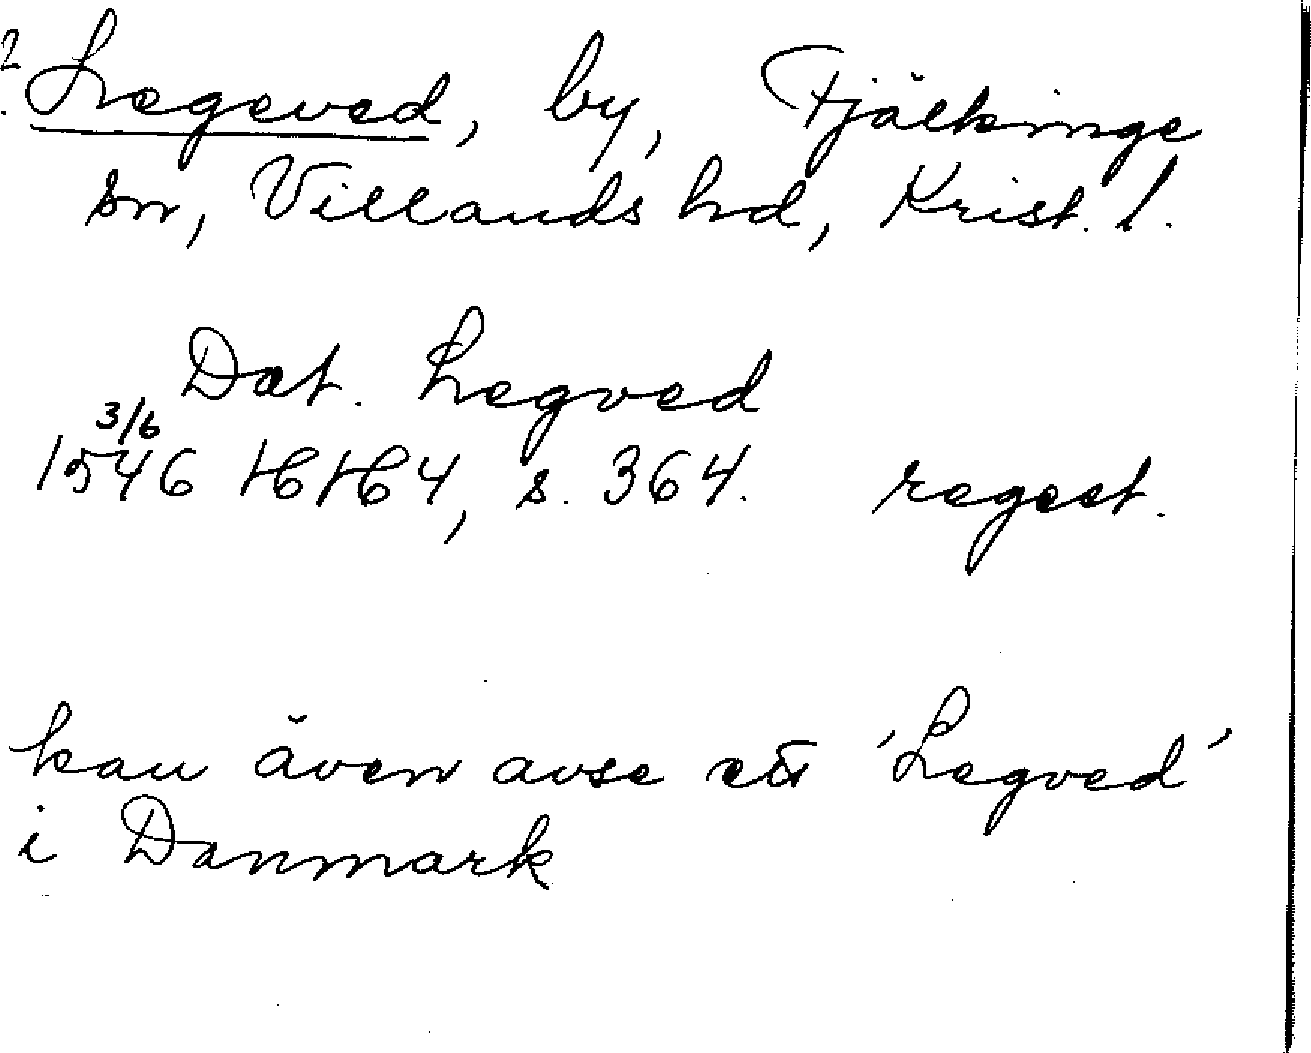 ? Legeved, by, Fjälkinge
sn, Villands hd, Krist. l.
Dat. Legved
3/6
1546 HH 4, s. 364. regest.
kan även avse ett 'Legved'
i Danmark